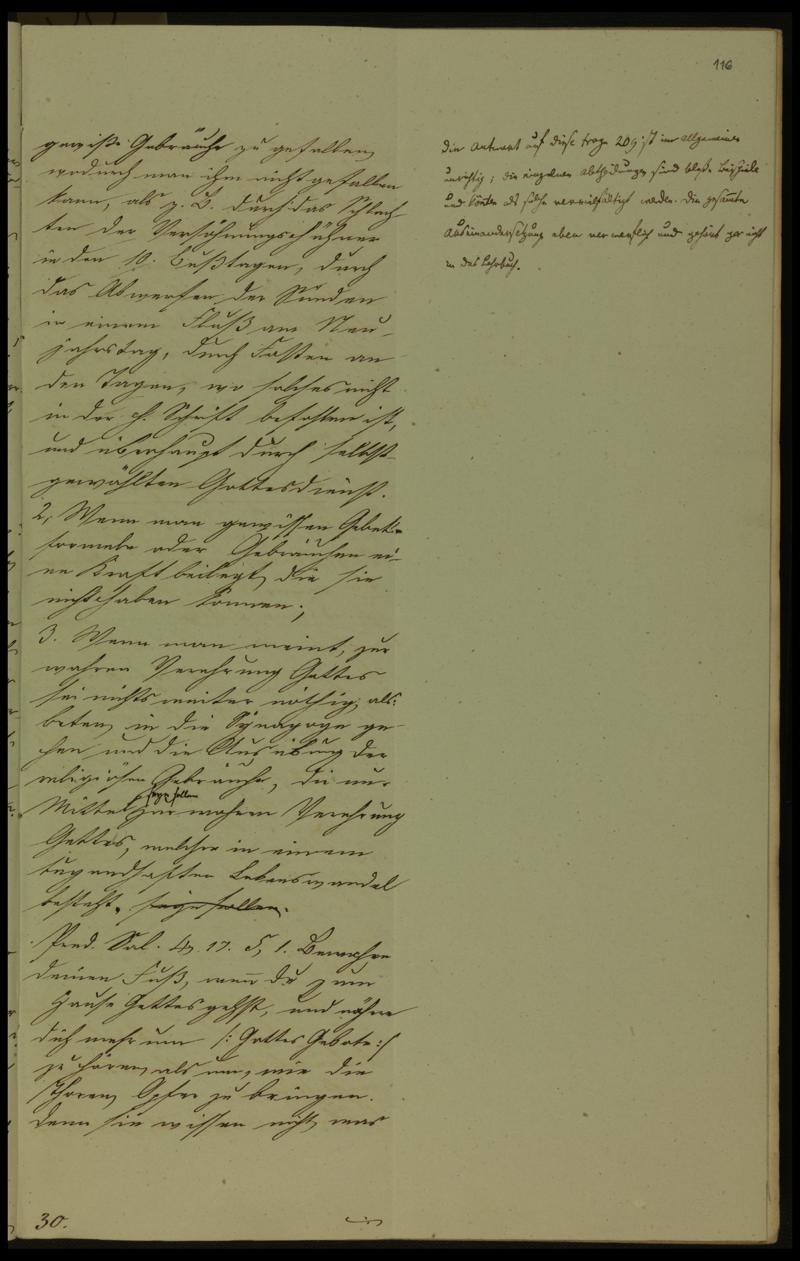 116
gewiße Gebräuche zu gefallen,
wodurch man ihm nicht gefallen
kann, als z. B. durch das Schlach-
ten der Versöhnungshühner
in den 10. Bußtagen, durch
das Abwerfen der Sünden
in einem Fluß am Neu-
jahrstag, durch Fasten an
den Tagen, wo solches nicht
in der h. Schrift befohlen ist,
und überhaupt durch selbst-
gewählten Gottesdienst.
2, Wenn man gewissen Gebet-
formeln oder Gebräuchen ei-
ne Kraft beilegt, die sie
nicht haben können;
3. Wenn man meint, zur
wahren Verehrung Gottes
sei nichts weiter nöthig, als:
beten, in die Synagoge ge-
hen und die Ausübung der
religiösen Gebräuche, die nur
Mittel seyn sollen zur wahren Verehrung
Gottes, welcher in einem
tugendhaften Lebenswandel
besteht. seyn sollen.
Pred. Sal. 4, 17. 5, 1. Bewahre
deinen Fuß, wenn du zum
Hause Gottes gehst, und nähre
dich mehr um /: Gottes Gebote :/
zu hören, als um, wie die
Thoren, Opfer zu bringen.
Denn sie wissen nicht, was
30.
Die Antwort auf diese Frage 209 ist im Allgemeinen
unrichtig; die einzelnen Abtheilungen sind bloße Beispiele
und könten als solche vervielfältigt werden. Die gesamte
Auseinandersetzung eben verwerflich und gehört gar nicht
in das Lehrbuch.